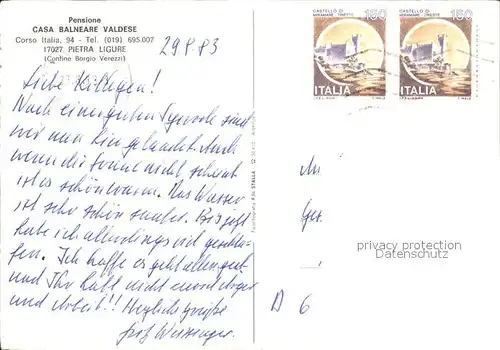 Pensione
CASA BALNEARE VALDESE
Corso Italia, 94 - Tel. (019) 695.007
17027 PIETRA LIGURE
(Confine Borgio Verezzi)
29.8.83
Liebe Kollegen!
Nach einer guten sind
wir nun hier gelandet. Auch
wenn die Sonne nicht scheint
ist es schön warm. Das Wasser
ist sehr schön sauber. Bis jetzt
habe ich allerdings viel geschla-
fen. Ich hoffe es geht allen gut
und Ihr habt nicht zuviel Ärger
und Arbeit!! Herzliche Grüße
CASTELLO DI
MIRAMARE - TRIESTE
150
ITALIA
CASTELLO DI
MIRAMARE - TRIESTE
150
ITALIA
An
privacy protection
Datenschutz
D 6